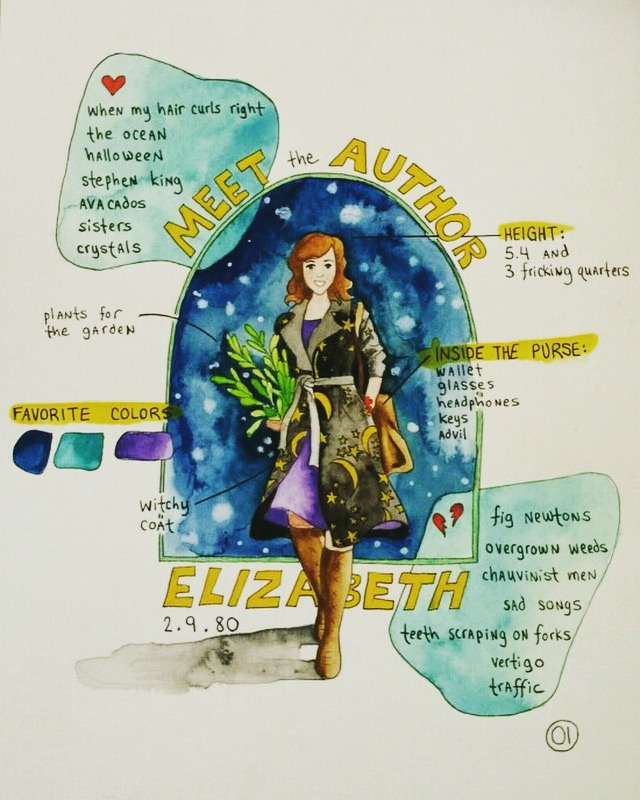 when my hair curls right
the ocean
halloween
stephen king
AVACADOS
sisters
crystals
MEET the AUTHOR
HEIGHT:
5.4 and
3 fricking quarters
plants for
the garden
INSIDE THE PURSE:
wallet
glasses
headphones
keys
Advil
FAVORITE COLORS
witchy
coat
fig newtons
overgrown weeds
chauvinist men
sad songs
teeth scraping on forks
vertigo
traffic
ELIZABETH
2.9.80
01